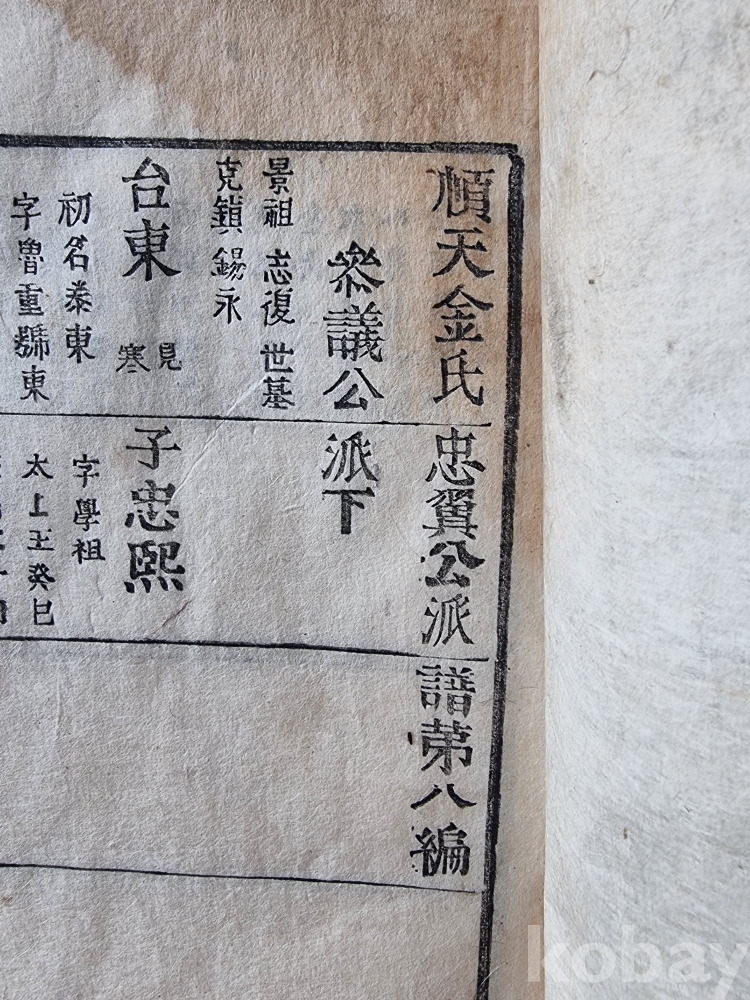 順天金氏忠翼公派譜第八編
叅議公派下
景祖 志復 世基
克鎖 錫永
台東 見寒
初名泰東
字魯重號東
子忠熙
字學祖
太上王癸巳
kobay